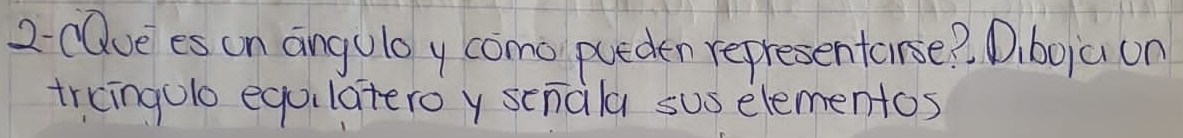 2-¿Qué es un ángulo y cómo pueden representarse?. Dibuja un
triángulo equilátero y señala sus elementos